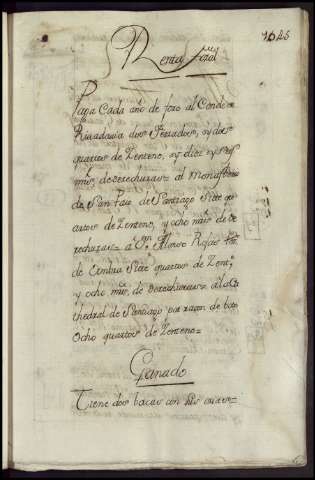 1645
Renta foral
Paga Cada año de foro al Conde de
Rivadavia dos Ferrados, y dos
quartos de Zenteno, y diez y seis
mrs. de derechuras= al Monasterio
de San Paio de Santiago Siete qu
artos de Zenteno, y ocho mrs. de de
rechuras= a Dn. Alonso Rojas
de Ombria Siete quartos de Zento.
y ocho mrs. de derechuras= a la Ca
thedral de Santiago por razon de boto
Ocho quartos de Zenteno=
Ganado
Tiene dos bacas con sus cuares=